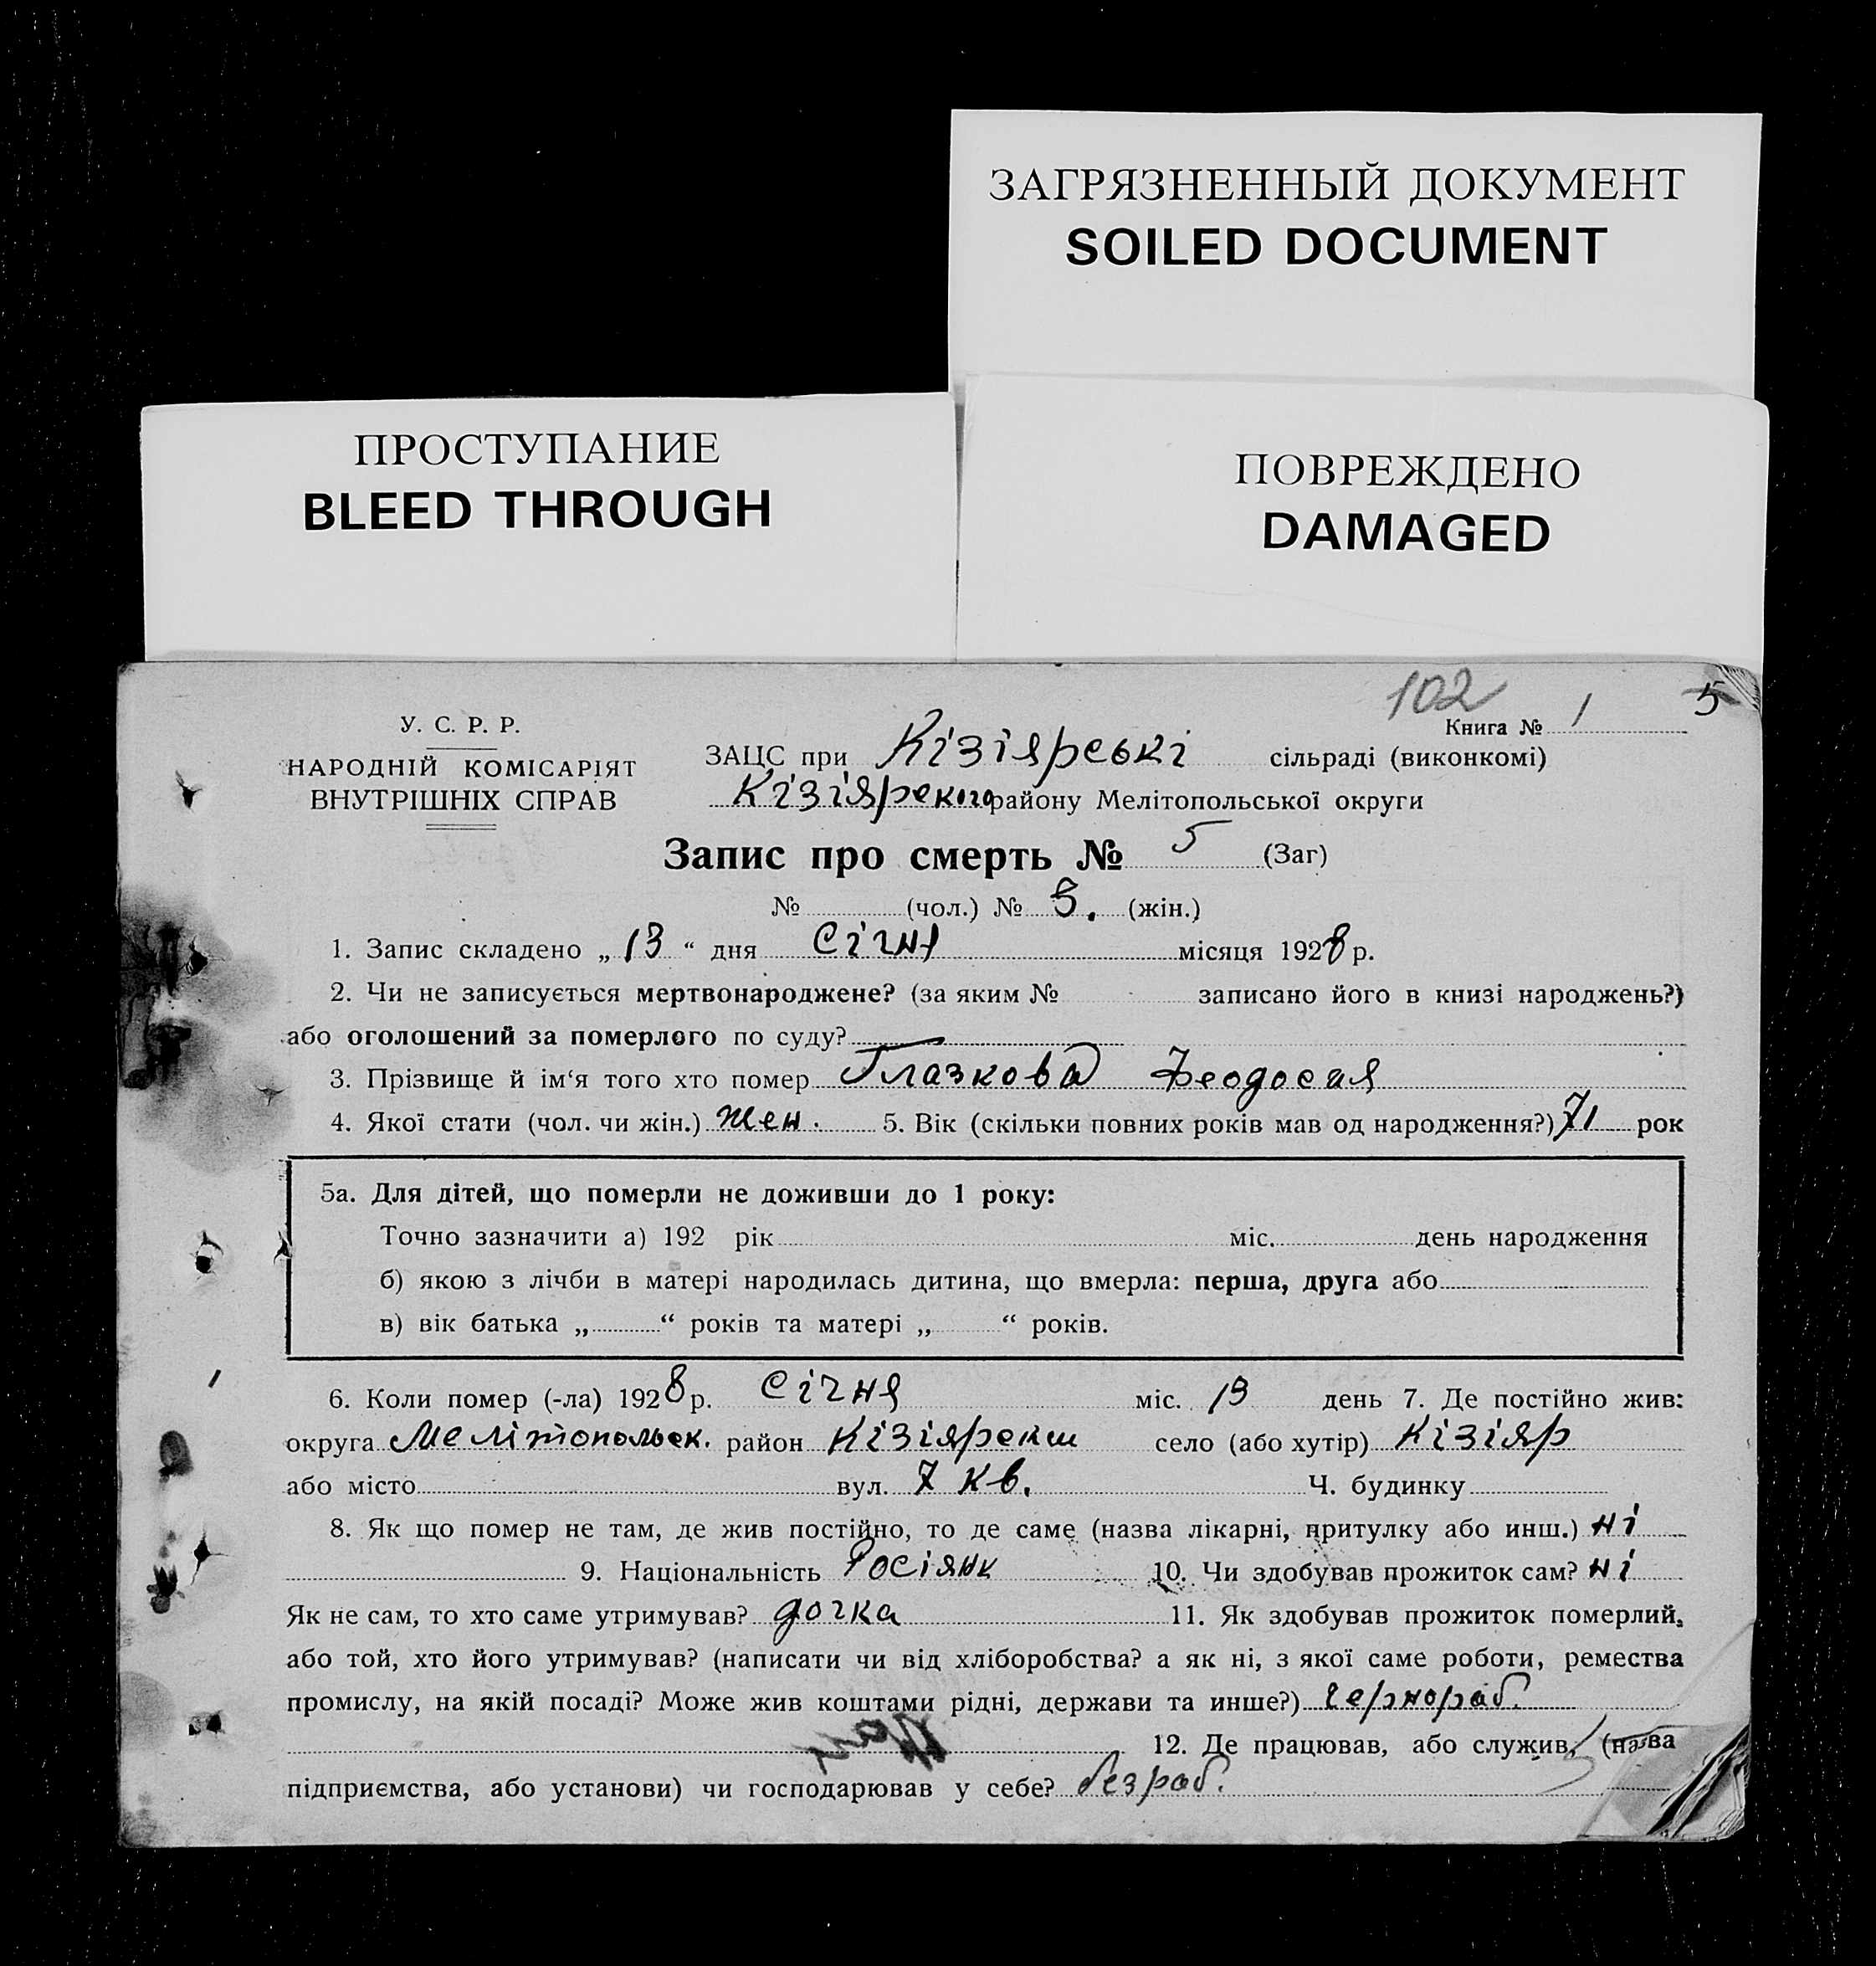 ЗАГРЯЗНЕННЫЙ ДОКУМЕНТ
SOILED DOCUMENT
ПРОСТУПАНИЕ
BLEED THROUGH
ПОВРЕЖДЕНО
DAMAGED
102
5
Книга № 1
У. С. Р. Р.
НАРОДНІЙ КОМІСАРІЯТ
ВНУТРІШНІХ СПРАВ
ЗАЦС при Кізіярські сільраді (виконкомі)
Кізіярского району Мелітопольської округи
Запис про смерть № 5 (Заг)
№ (чол.) № 5. (жін.)
1. Запис складено „ 13 “ дня Січня місяця 1928 р.
2. Чи не записується мертвонароджене? (за яким № записано його в книзі народжень?)
або оголошений за померлого по суду?
3. Прізвище й ім‘я того хто помер Глазкова Феодосия
4. Якої стати (чол. чи жін.) жен. 5. Вік (скільки повних років мав од народження?) 71 рок
5а. Для дітей, що померли не доживши до 1 року:
Точно зазначити а) 192 рік міс. день народження
б) якою з лічби в матері народилась дитина, що вмерла: перша, друга або
в) вік батька „ “ років та матері „ “ років.
6. Коли помер (-ла) 1928 р. Січня міс. 13 день 7. Де постійно жив:
округа Мелітопольск. район Кізіярски село (або хутір) Кізіяр
або місто вул. 7 кв. Ч. будинку
8. Як що помер не там, де жив постійно, то де саме (назва лікарні, притулку або инш.) ні
9. Національність Росіянк 10. Чи здобував прожиток сам? ні
Як не сам, то хто саме утримував? дочка 11. Як здобував прожиток померлий,
або той, хто його утримував? (написати чи від хліборобства? а як ні, з якої саме роботи, ремества
промислу, на якій посаді? Може жив коштами рідні, держави та инше?) чернораб.
12. Де працював, або служив, (назва
підприємства, або установи) чи господарював у себе? безраб.